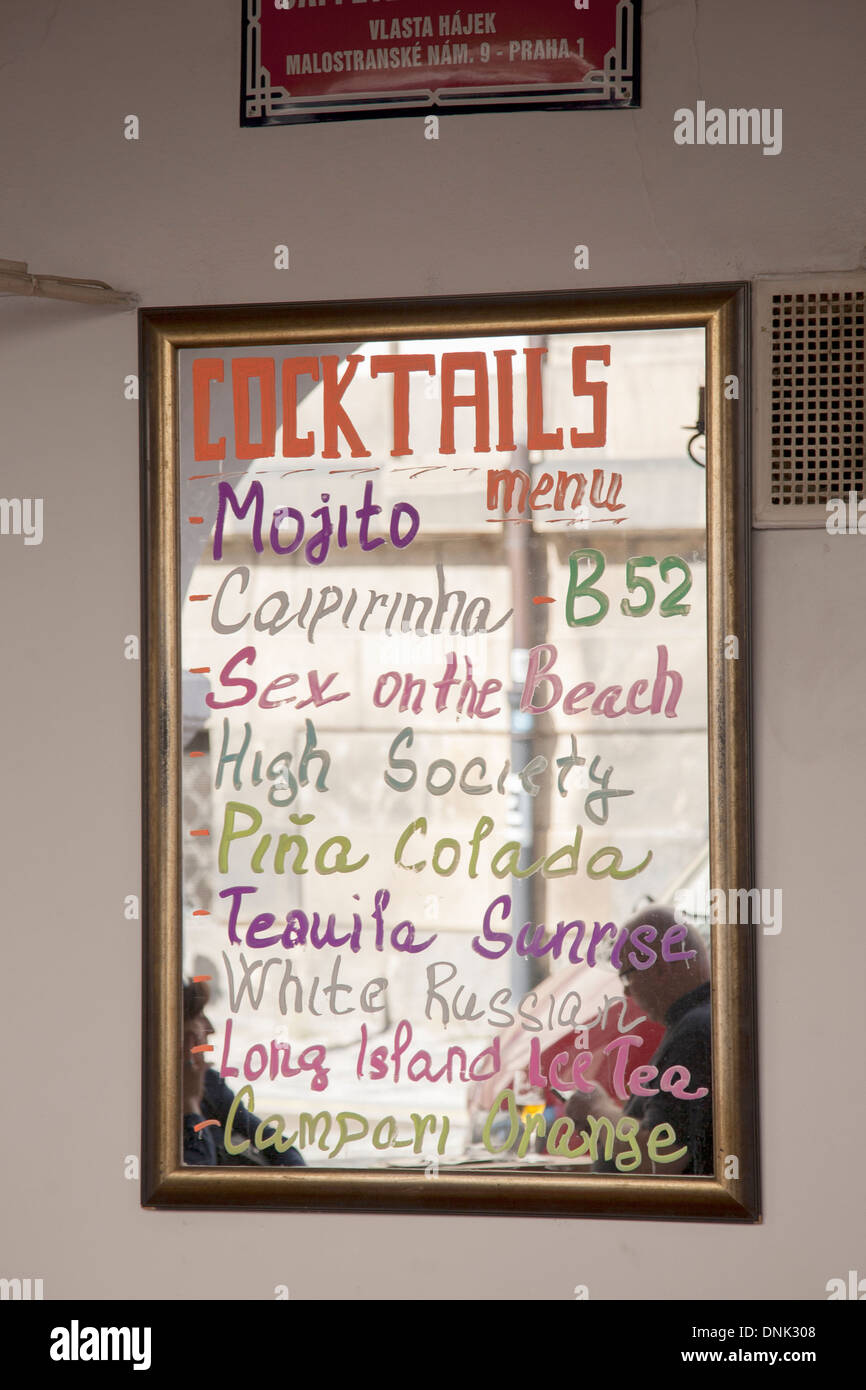 VLASTA HÁJEK
MALOSTRANSKÉ NÁM. 9 - PRAHA 1
COCKTAILS
menu
- Mojito
- Caipirinha - B52
- Sex on the Beach
- High Society
- Piña Colada
- Tequila Sunrise
- White Russian
- Long Island Ice Tea
- Campari Orange
alamy
a
alamy stock photo
DNK308
www.alamy.com